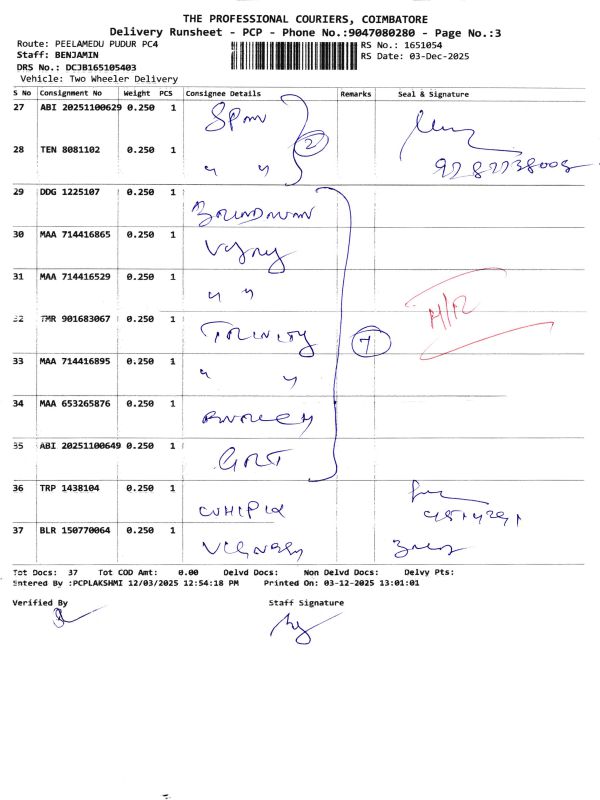 THE PROFESSIONAL COURIERS, COIMBATORE
Delivery Runsheet - PCP - Phone No.:9047080280 - Page No.:3
Route: PEELAMEDU PUDUR PC4
Staff: BENJAMIN
DRS No.: DCJB165105403
Vehicle: Two Wheeler Delivery
RS No.: 1651054
RS Date: 03-Dec-2025
S No Consignment No Weight PCS Consignee Details Remarks Seal & Signature
27 ABI 20251100629 0.250 1
28 TEN 8081102 0.250 1 " "
2
29 DDG 1225107 0.250 1
30 MAA 714416865 0.250 1
31 MAA 714416529 0.250 1 " "
32 TMR 901683067 0.250 1 TRINITY
7
33 MAA 714416895 0.250 1 " "
34 MAA 653265876 0.250 1
35 ABI 20251100649 0.250 1 GRT
36 TRP 1438104 0.250 1
37 BLR 150770064 0.250 1
Tot Docs: 37 Tot COD Amt: 0.00 Delvd Docs: Non Delvd Docs: Delvy Pts:
Entered By :PCPLAKSHMI 12/03/2025 12:54:18 PM Printed On: 03-12-2025 13:01:01
Verified By Staff Signature